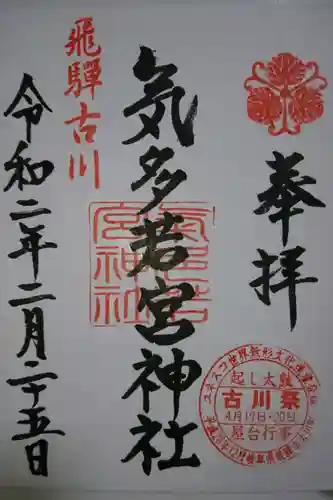 奉拝
気多若宮神社
飛騨古川
令和二年二月二十五日
気多若宮神社
ユネスコ世界無形文化遺産登録
起し太鼓
古川祭
4月19日・20日
屋台行事